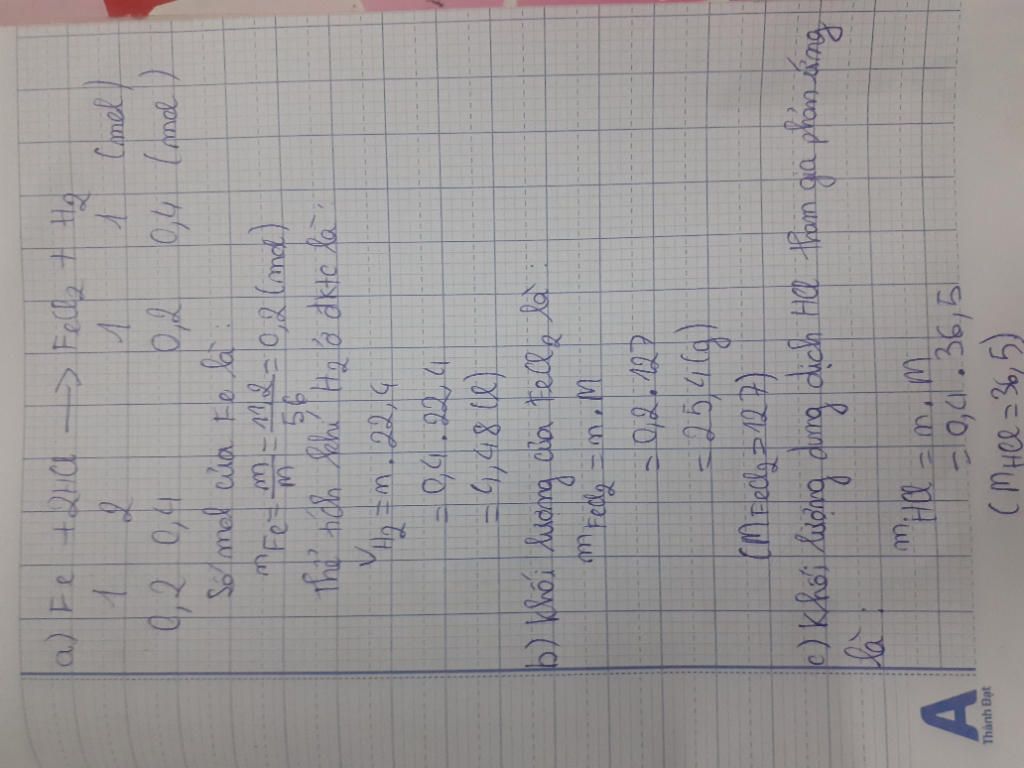 a) Fe + 2HCl → FeCl2 + H2
1 2 1 1 (mol)
0,2 0,4 0,2 0,4 (mol)
Số mol của Fe là:
nFe = m/M = 11,2/5,6 = 0,2 (mol)
Thể tích khí H2 ở đktc là:
VH2 = n . 22,4
= 0,4 . 22,4
= 4,48 (l)
b) Khối lượng của FeCl2 là:
mFeCl2 = n . M
= 0,2 . 127
= 25,4 (g)
(MFeCl2 = 127)
c) Khối lượng dung dịch HCl tham gia phản ứng
là:
mHCl = n . M
= 0,4 . 36,5
(MHCl = 36,5)
A
Thành Đạt